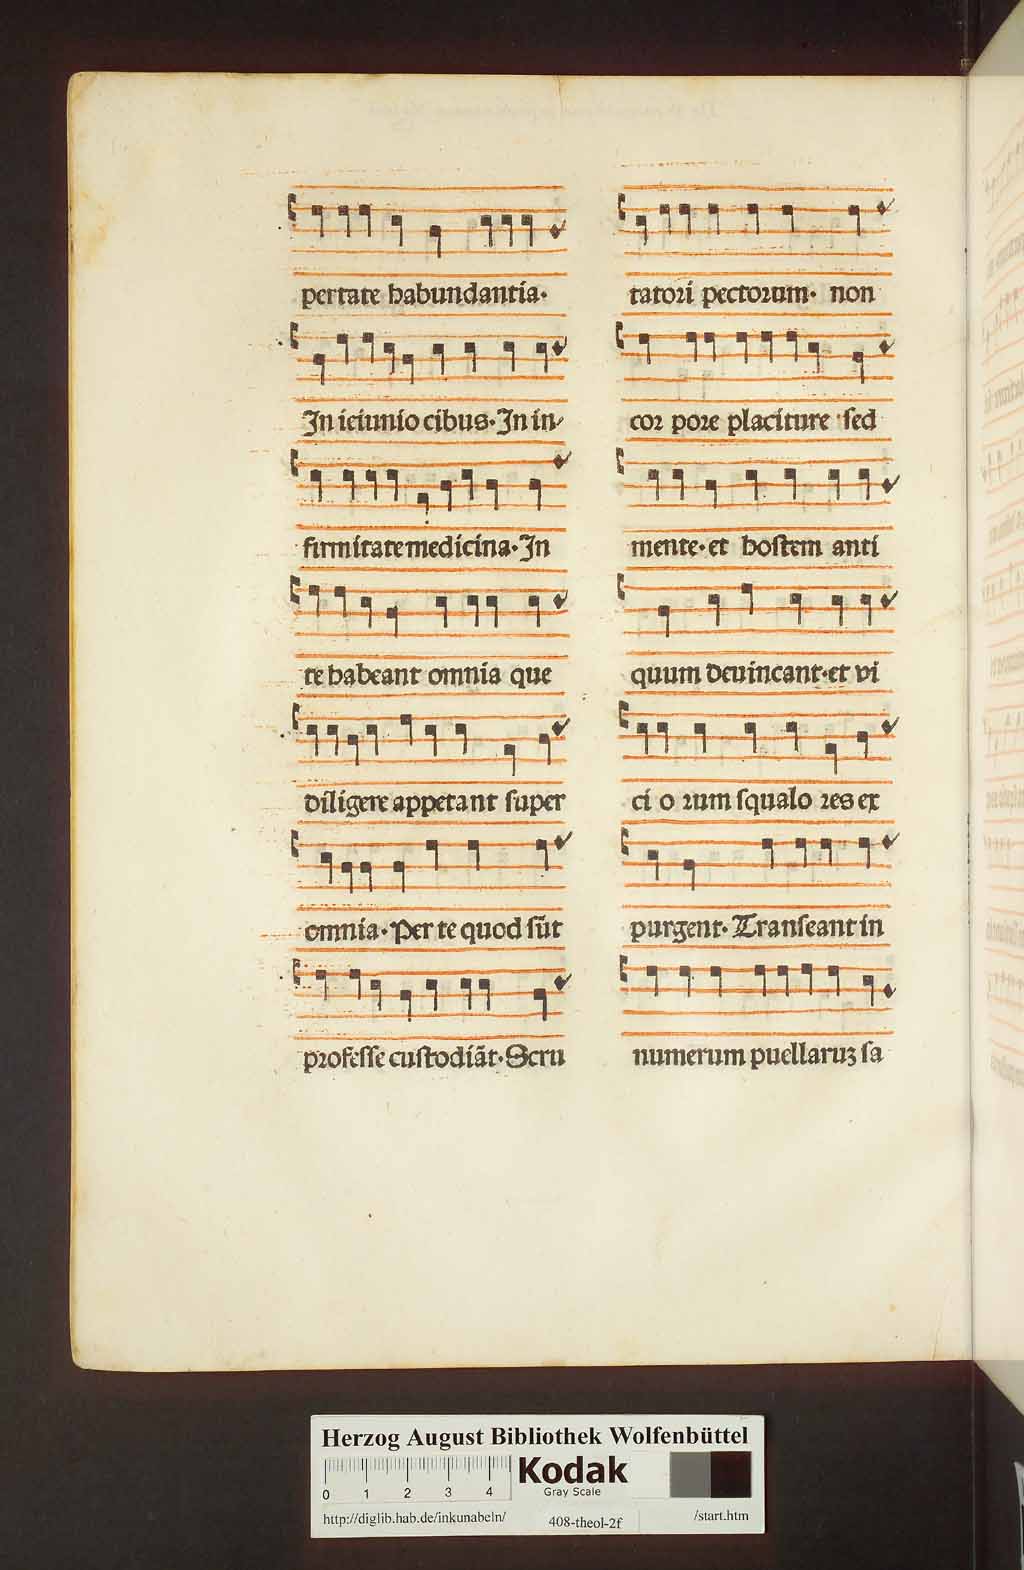 pertate habundantia·
In ieiunio cibus· In in
firmitate medicina· In
te habeant omnia que
diligere appetant super
omnia· Per te quod sūt
professe custodiāt· Scru
tatori pectorum· non
cor pore placiture sed
mente· et hostem anti
quum deuincant· et vi
ci o rum squalo res ex
purgent· Transeant in
numerum puellaruꝫ sa
Herzog August Bibliothek Wolfenbüttel
0 1 2 3 4
Kodak
Gray Scale
http://diglib.hab.de/inkunabeln/ 408-theol-2f /start.htm